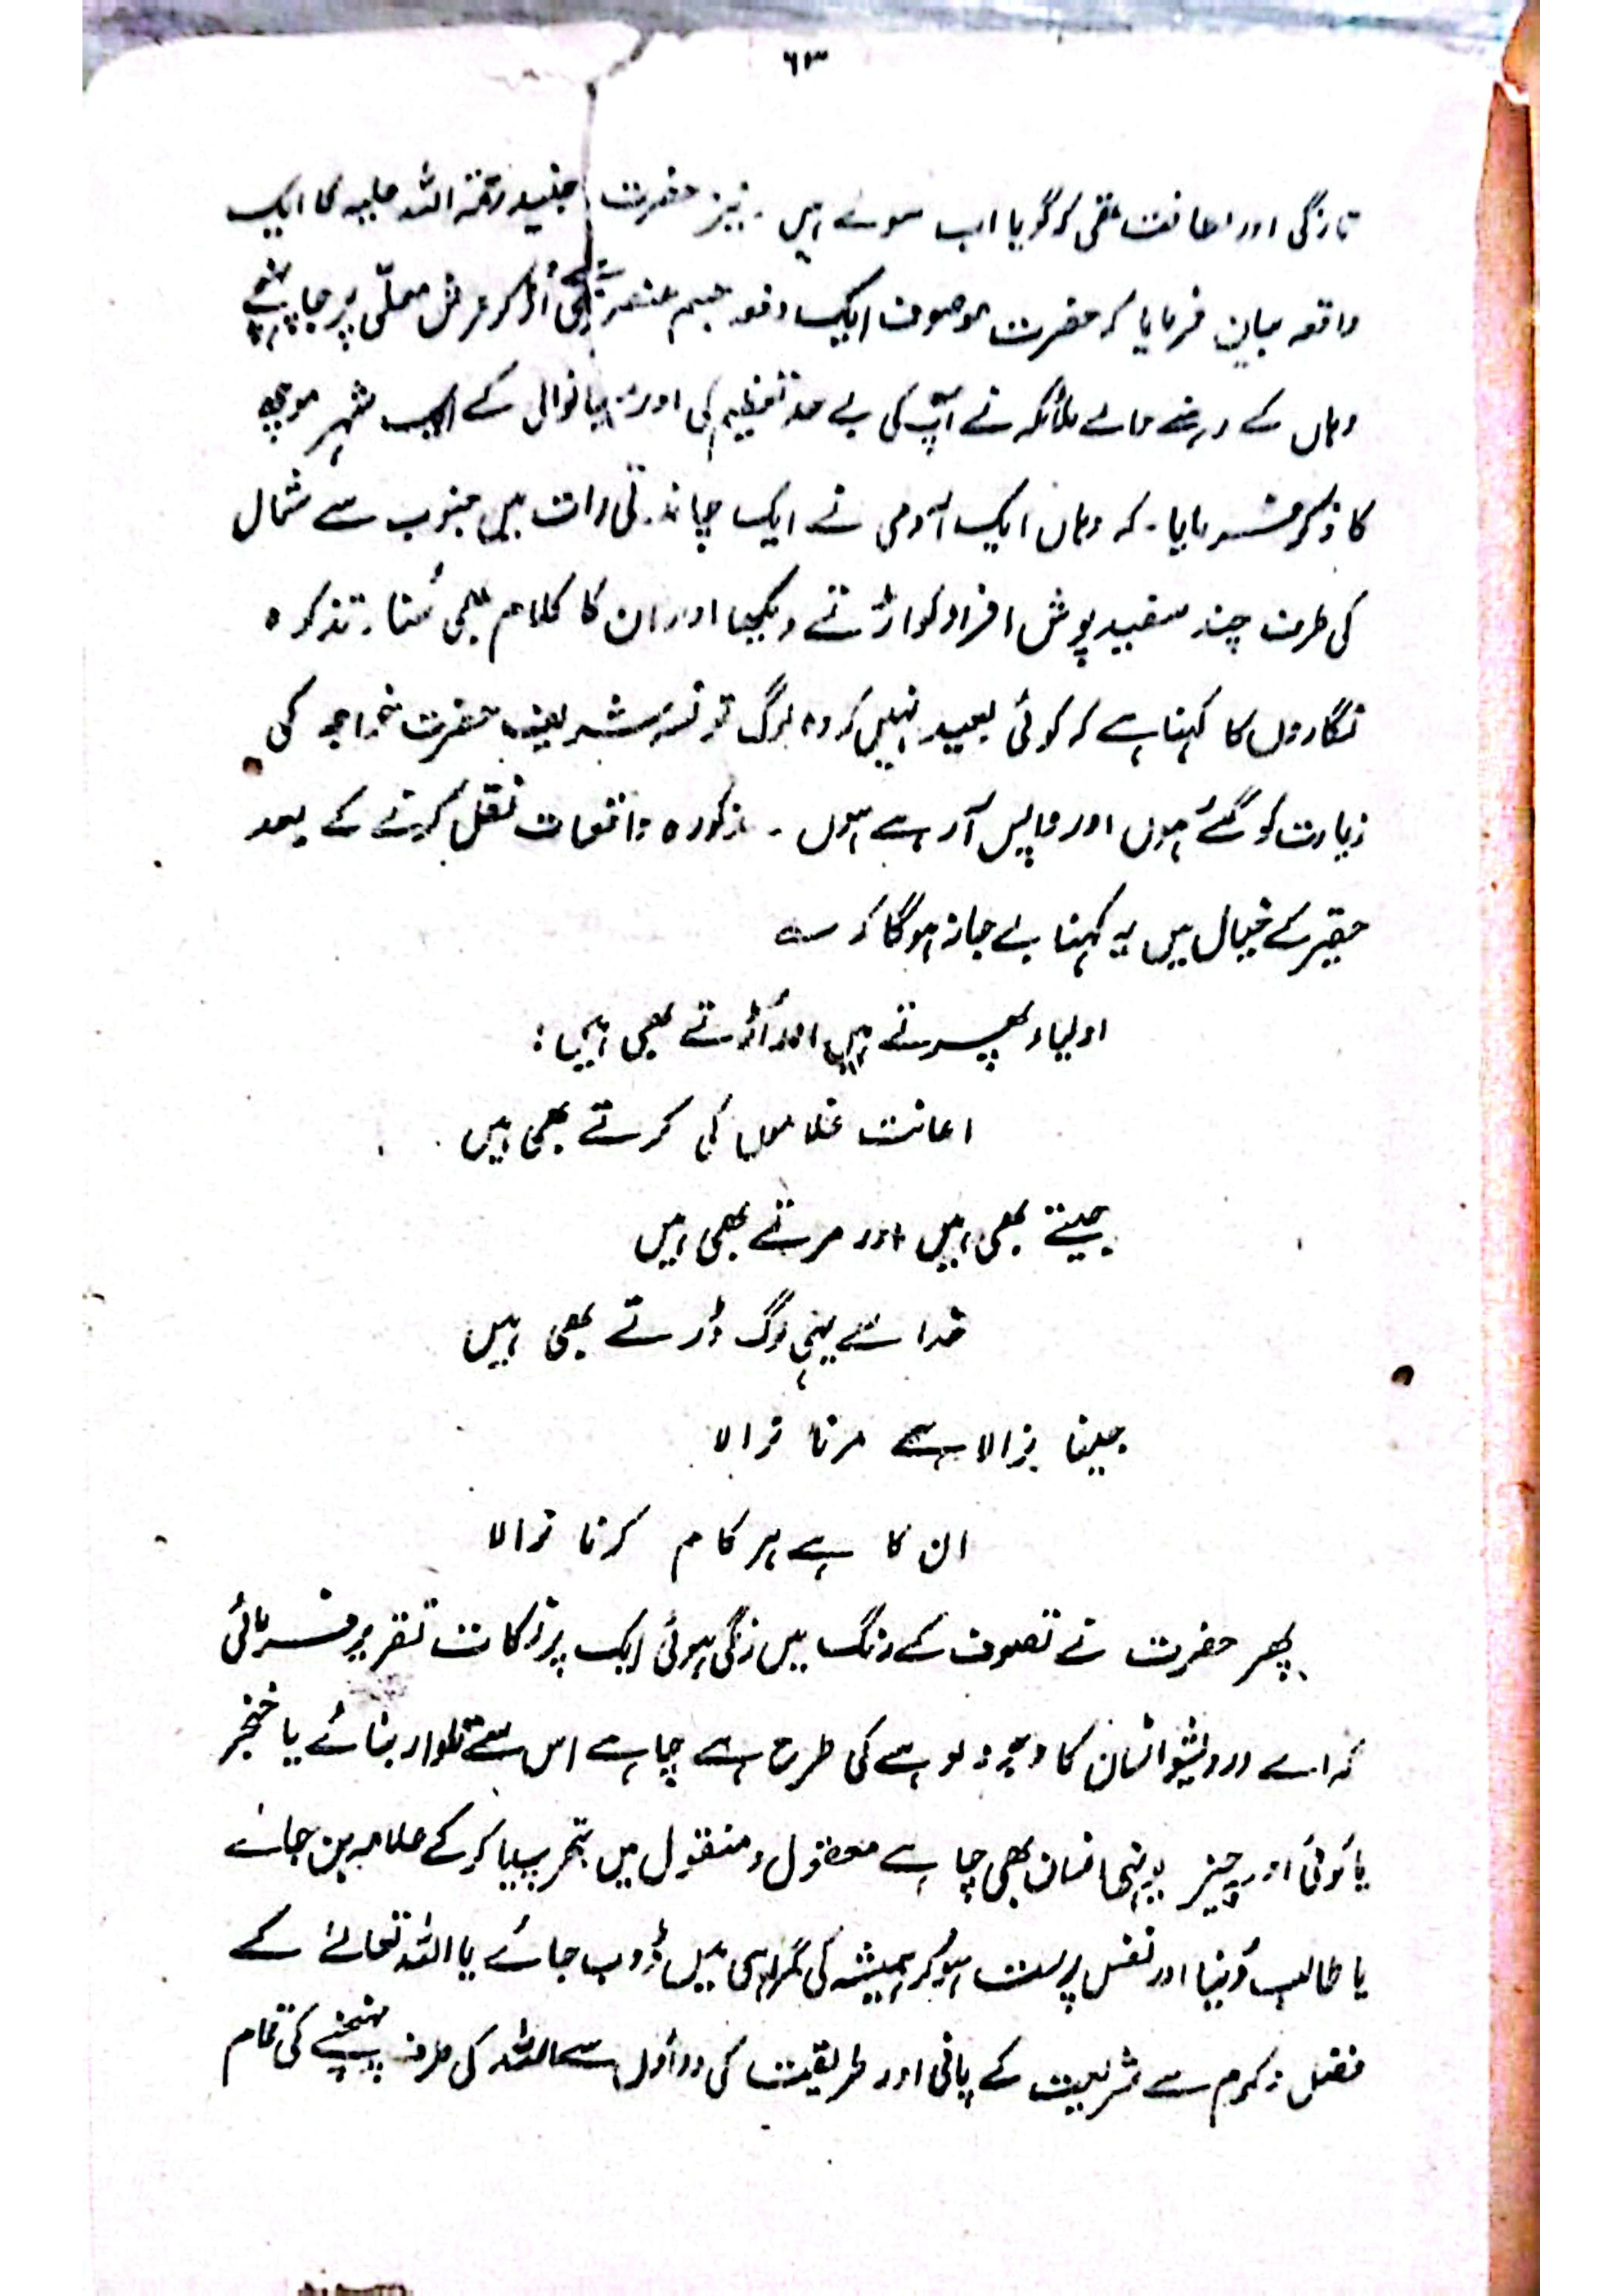 ۶۳
تازگی اور لطافت تھی کہ گویا اب سوئے ہیں ۔ نیز حضرت جنید رحمۃ اللہ علیہ کا ایک
واقعہ بیان فرمایا کہ حضرت موصوف ایک دفعہ جسم عنصری سے اُڑ کر عرش معلّٰی پر جا پہنچے
وہاں کے رہنے والے ملائکہ نے آپ کی بے حد تعظیم کی اور میانوالی کے ایک شہر موچھ
کا ذکر فرمایا ۔ کہ وہاں ایک آدمی نے ایک چاندنی رات میں جنوب سے شمال
کی طرف چند سفید پوش افراد کو اڑتے دیکھا اور ان کا کلام بھی سُنا ۔ تذکرہ
نگاروں کا کہنا ہے کہ کوئی بعید نہیں کہ وہ لوگ تونسہ شریف حضرت خواجہ کی
زیارت کو گئے ہوں اور واپس آ رہے ہوں ۔ مذکورہ واقعات نقل کرنے کے بعد
حقیر کے خیال میں یہ کہنا بے جا نہ ہوگا کہ ؎
اولیاء پھرتے ہیں اور اُڑتے بھی ہیں :
اعانت غلاموں کی کرتے بھی ہیں
جیتے بھی ہیں اور مرتے بھی ہیں
خدا سے یہی لوگ ڈرتے بھی ہیں
جینا نرالا ہے مرنا نرالا
ان کا ہے ہر کام کرنا نرالا
پھر حضرت نے تصوف کے رنگ میں رنگی ہوئی ایک پر نکات تقریر فرمائی
کہ اے درویشو انسان کا وجود لوہے کی طرح ہے چاہے اس سے تلوار بنائے یا خنجر
یا کوئی اور چیز یونہی انسان بھی چاہے معقول و منقول میں تجربہ پیدا کر کے علامہ بن جائے
یا طالب دُنیا اور نفس پرست ہو کر ہمیشہ کی گمراہی میں ڈوب جائے یا اللہ تعالےٰ کے
فضل و کرم سے شریعت کے پانی اور طریقت کی سے اللہ کی طرف پہنچنے کی تمام